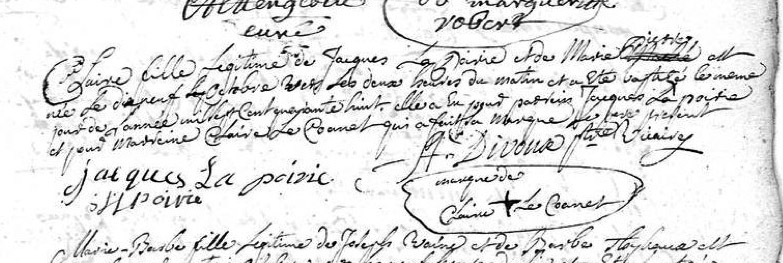 curé
de marguerite
robert
Claire fille Legitime de Jacques La Poirie et de Marie est
née Le dixneuf d'octobre vers Les deux heures du matin et a ete baptisé le meme
jour de l'année mil sept Cent quarante huit elle a Eu pour parrein Jacques La poirie
et pour Marreine Claire Le Coanet qui a fait sa Marque Le pere présent
Divoux ptre Vicaire
jacques La poirie
poirie
marque de
Claire + Le Coanet
Marie-Barbe fille Legitime de Joseph et de Barbe est